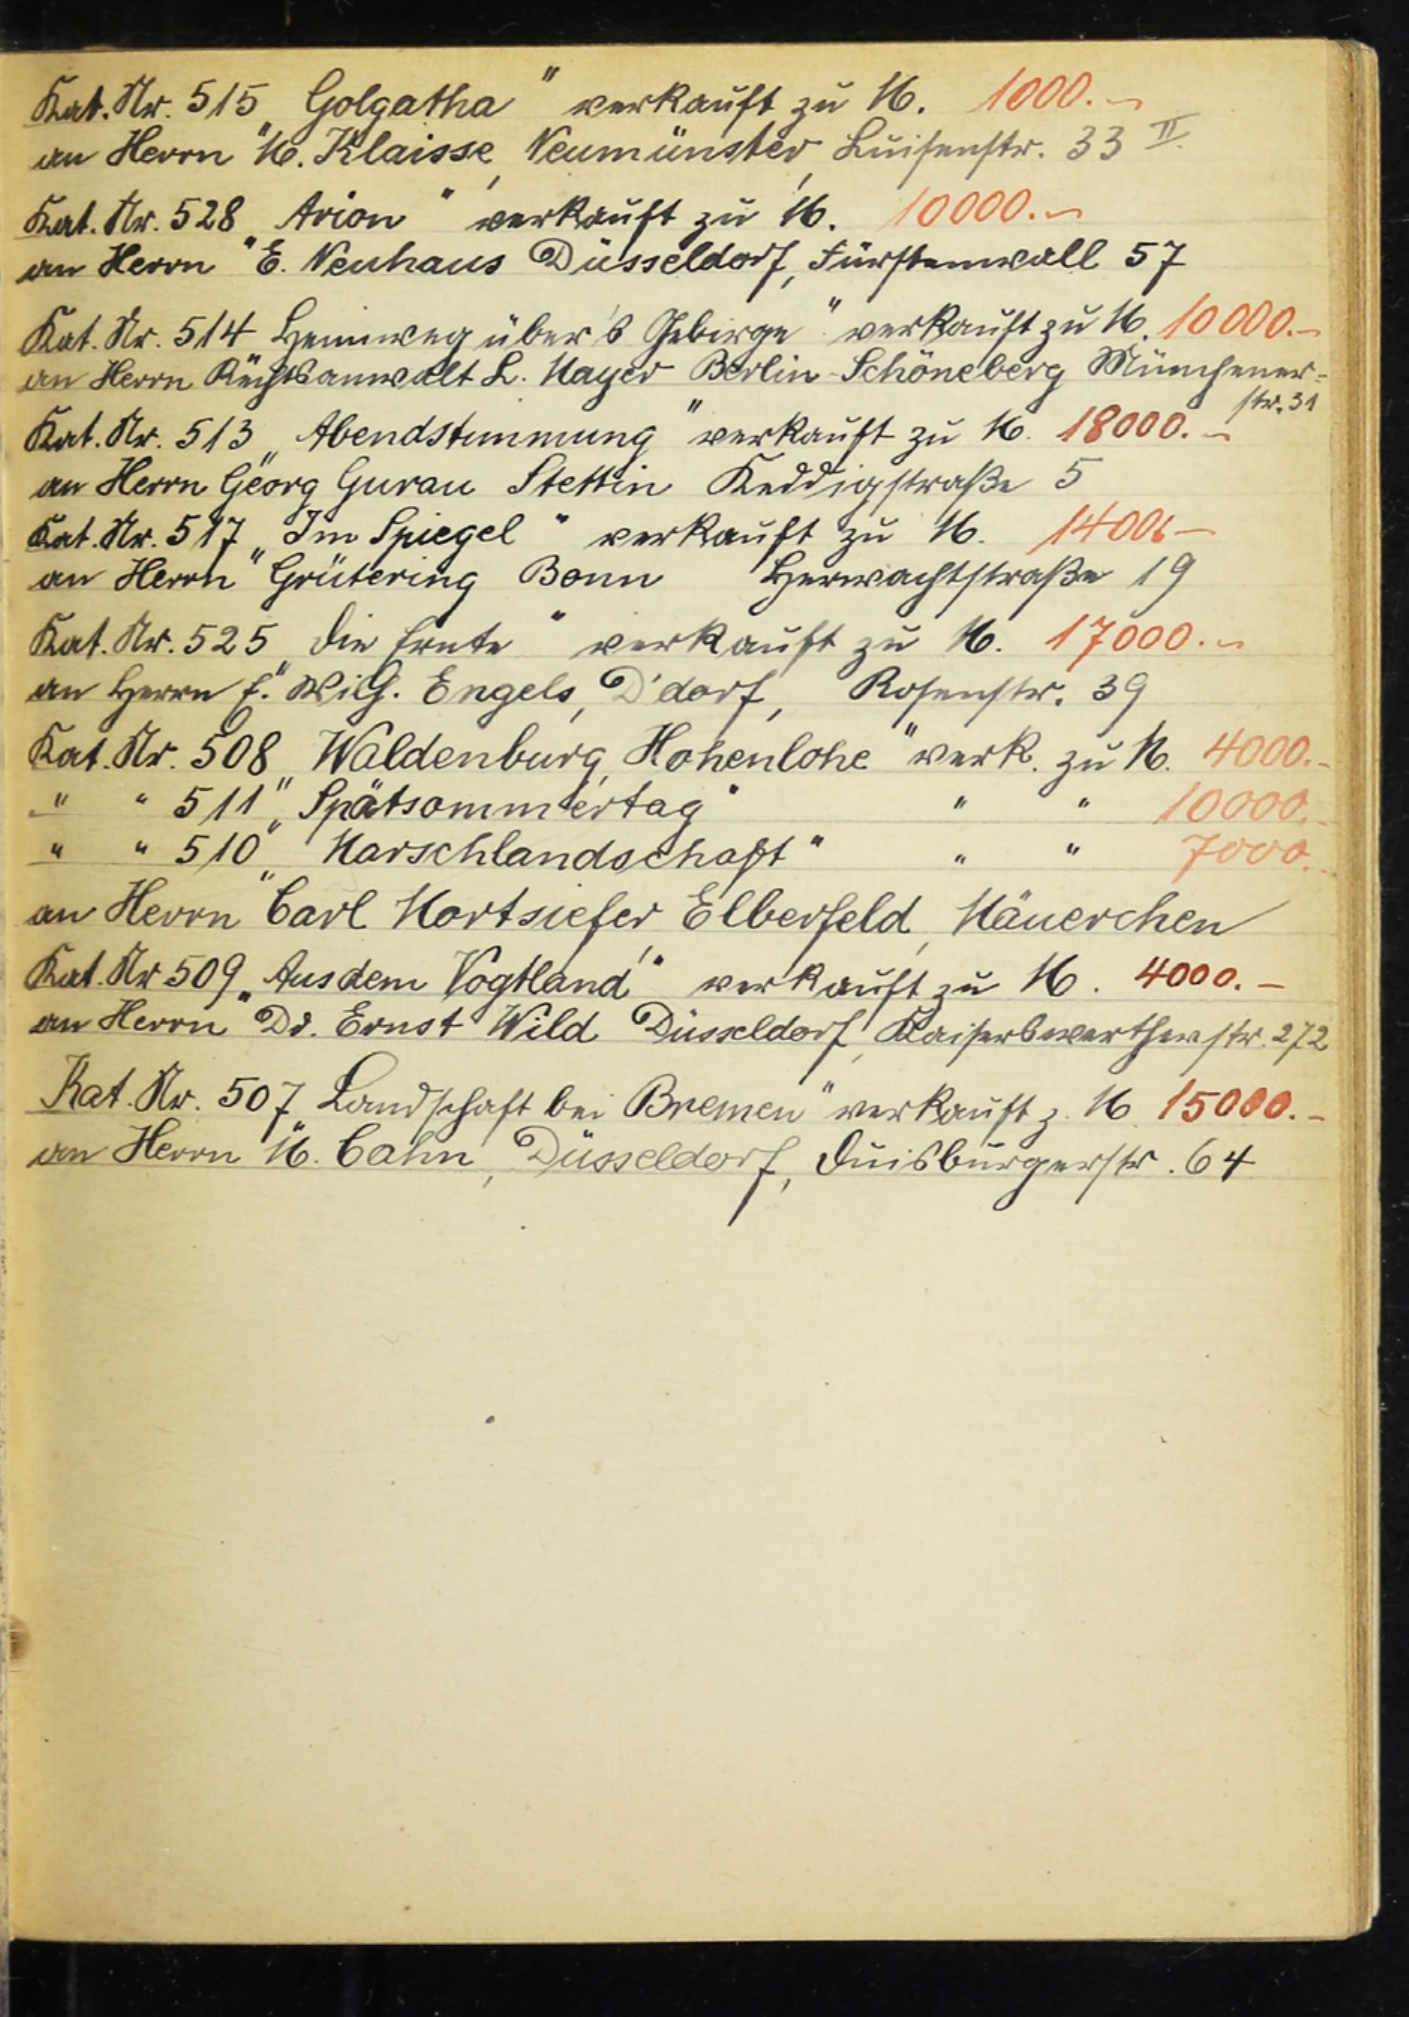 Kat. Nr. 515 „Golgatha" verkauft zu M. 1000.–
an Herrn M. Klaisse, Neumünster, Luisenstr. 33 II.
Kat. Nr. 528 „Arion" verkauft zu M. 10000.–
an Herrn E. Neuhaus Düsseldorf, Fürstenwall 57
Kat. Nr. 514 Heimweg über's Gebirge" verkauft zu M. 10000.–
an Herrn Rechtsanwalt L. Mayer Berlin-Schöneberg Münchener-
str. 31
Kat. Nr. 513 „Abendstimmung" verkauft zu M. 18000.–
an Herrn Georg Gurau Stettin Keddigstraße 5
Kat. Nr. 517 „Im Spiegel" verkauft zu M. –
an Herrn Grütering Bonn Herwachtstraße 19
Kat. Nr. 525 „Die Ernte" verkauft zu M. 17000.–
an Herrn E. Wilh. Engels, D'dorf, Rosenstr. 39
Kat. Nr. 508 „Waldenburg, Hohenlohe" verk. zu M. 4000.–
" " 511 „Spätsommertag" " " 10000.–
" " 510 „Marschlandschaft" " " 7000.
an Herrn Carl Mortsiefer, Elberfeld, Mäuerchen
Kat. Nr 509 „Aus dem Vogtland" verkauft zu M. 4000.–
an Herrn Dr. Ernst Wild Düsseldorf, Kaiserswertherstr. 272
Kat. Nr. 507 „Landschaft bei Bremen" verkauft z. M 15000.–
an Herrn M. Cahn, Düsseldorf, Duisburgerstr. 64